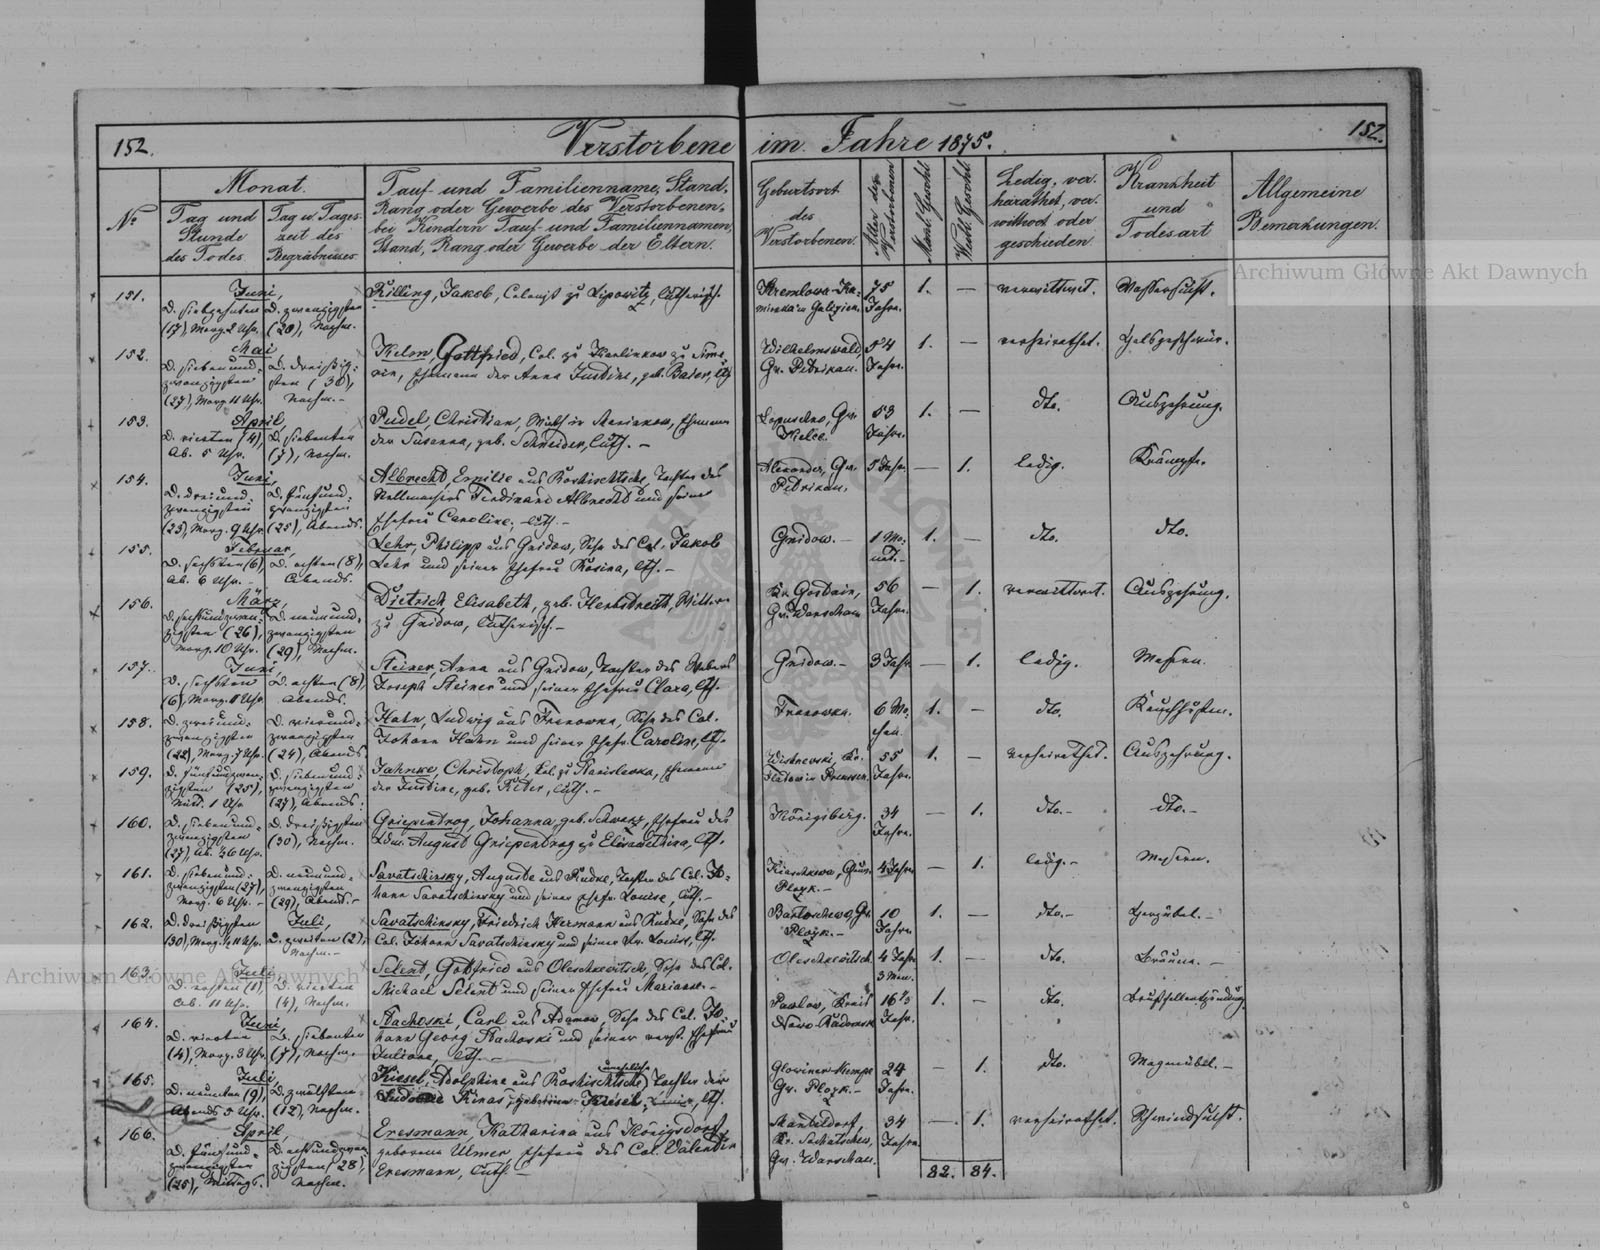 152.
Verstorbene im Jahre 1875.
152.
No
Monat.
Tag und Stunde des Todes.
Tag u. Tageszeit des Begräbnisses
Tauf und Familienname, Stand,
Rang oder Gewerbe des Verstorbenen,
bei Kindern Tauf- und Familiennamen,
Stand, Rang oder Gewerbe der Eltern.
Geburtsort
des
Verstorbenen.
Alter des Verstorbenen
Männl. Geschl.
Weibl. Geschl.
Ledig, ver-
heirathet, ver-
wittwet oder
geschieden
Krankheit
und
Todesart
Allgemeine
Bemerkungen.
151.
Juni,
D. siebzehnten
(17), Morg. 2 Uhr.
D. zwanzigsten
(20), Nachm.
Killing, Jakob, Colonist zu Lipowitz, lutherisch.
75
Jahre.
1.
—
verwittwet.
Wassersucht.
152.
Mai
D. sieben und-
zwanzigsten
(27), Morg. 11 Uhr.
D. dreißig-
sten (30),
Nachm.
Gottfried, Col. zu
Ehemann der Anna Justine, geb. Baier,
Wilhelmswald,
Gv. Petrikau.
54
Jahre.
1.
—
verheirathet.
Halsgeschwür.
153.
April,
D. vierten (4),
Ab. 5 Uhr.
D. siebenten
(7), Nachm.
Pudel, Christian, Wirth in Marianow, Ehemann
der Susanna, geb. Schneider, luth.
Lopuschno, Gv.
Kielce.
53
Jahre.
1.
—
dto.
Auszehrung.
154.
Juni,
D. drei und-
zwanzigsten
(23), Morg. 9 Uhr.
D. fünfund-
zwanzigsten
(25), Abends.
Albrecht, Emilie aus Roskischtsche, Tochter des
Stellmachers Ferdinand Albrecht und seiner
Ehefrau Caroline, luth.
Alexander, Gv.
Petrikau.
5 Jahre.
—
1.
ledig.
Krämpfe.
155.
Februar,
D. sechsten (6),
Ab. 6 Uhr.
D. achten (8),
Abends.
Lehr, Philipp aus Gnidow, Sohn des Col. Jakob
Lehr und seiner Ehefrau Rosina, lth.
Gnidow.
1 Mo-
nat.
1.
—
dto.
dto.
156.
März
D. sechsundzwan-
zigsten (26),
Morg. 10 Uhr.
D. neunund-
zwanzigsten
(29), Nachm.
Dietrich, Elisabeth, geb. Herbstreith, Wittwe
zu Gnidow, lutherisch.
Gv. Warschau
56
Jahre.
—
1.
verwittwet.
Auszehrung.
157.
Juni,
D. sechsten
(6), Morg. 11 Uhr
D. achten (8),
Abends.
Steiner, Anna aus Gnidow, Tochter des Webers
Joseph Steiner und seiner Ehefrau Clara, lth.
Gnidow.
3 Jahr
—
1.
ledig.
Masern.
158.
D. zweiund-
zwanzigsten
(22), Morg. 7 Uhr.
D. vierund-
zwanzigsten
(24), Abends
Hahn, Ludwig aus Franowka, Sohn des Col.
Johann Hahn und seiner Ehefr. Caroline, lth.
Franowka.
6 Wo-
chen.
1.
—
dto.
Keuchhusten.
159.
D. fünfundzwan-
zigsten (25),
Mitt. 1 Uhr
D. siebenund-
zwanzigsten
(27), Abends.
Jahnke, Christoph, Col. zu Stanislawka, Ehemann
der Justine, geb. Peter, luth.
Wistnewski, Kr.
Preussen.
55
Jahre.
1.
—
verheirathet.
Auszehrung.
160.
D. siebenund-
zwanzigsten
(27), Ab. ½6 Uhr.
D. dreißigsten
(30), Nachm.
Griependrog, Johanna, geb. Schwarz, Ehefrau des
August Griependrog zu Elisawethina, lth.
Königsberg.
34
Jahre.
—
1.
dto.
dto.
161.
D. siebenund-
zwanzigsten (27),
Morg. 6 Uhr.
D. neunund-
zwanzigsten
(29), Abends.
Sawatschinsky, Auguste aus Rudke, Tochter des Col. Jo-
hann Sawatschinsky und seiner Ehefr. Louise, luth.
Plozk.
4 Jahre
—
1.
ledig.
Masern.
162.
D. dreißigsten
(30), Morg. ½11 Uhr.
Juli,
D. zweiten (2),
Nachm.
Sawatschinsky, Friedrich Hermann aus Rudke, Sohn des
Col. Johann Sawatschinsky und seiner Fr. Louise, lth.
Plozk.
10
Jahre.
1.
—
dto.
163.
Juli
D. ersten (1),
Ab. 11 Uhr.
D. vierten
(4), Nachm.
Selent, Gottfried aus Oleschkewitsch, Sohn des Col.
Michael Selent und seiner Ehefrau Marianne.
Oleschkewitsch
4 Jahre
3 Mon.
1.
—
dto.
Bräune.
164.
Juni,
D. vierten
(4), Morg. 3 Uhr
D. siebenten
(7), Nachm.
Stachoski, Carl aus Adamow, Sohn des Col. Jo-
hann Georg Stachoski und seiner verst. Ehefrau
Juliane, lth.
Pawlow, Kreis
Nowo-Radomsk
16½
Jahr.
1.
—
dto.
Brustfellentzündung
165.
Juli
D. neunten (9),
Abends 5 Uhr.
D. zwölften
(12), Nachm.
Kiesel, Adolphine aus Roskischtsche, Tochter der
Kinas, Kiesel, lth.
Gv. Plozk.
24
Jahre.
—
1.
dto.
Magenübel.
166.
April,
D. fünfund-
zwanzigsten
(25), Mittags.
D. achtundzwan-
zigsten (28),
Nachm.
Eresmann, Katharina aus Königsdorf,
geborene Ulmer, Ehefrau des Col. Valentin
Eresmann, luth.
Gv. Warschau.
34
Jahre
—
1.
verheirathet.
Schwindsucht.
82.
84.
Archiwum Główne Akt Dawnych
Archiwum Główne Akt Dawnych